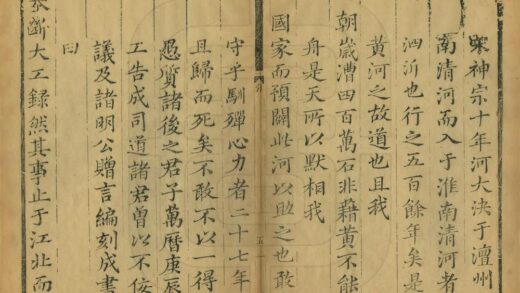 宋神宗十年河大決于澶州
南清河而入于淮南清河者
泗沂也行之五百餘年矣是
黃河之故道也且我
朝歲漕四百萬石非藉黃不能
舟是天所以默相我
國家而預闢此河以助之也敢
守乎馴殫心力者二十七年
且歸而死矣不敢不以一得
愚質諸後之君子萬曆庚辰
工告成司道諸君曾以不佞
議及諸明公贈言編刻成書
曰
宸斷大工録然其事止于江北而